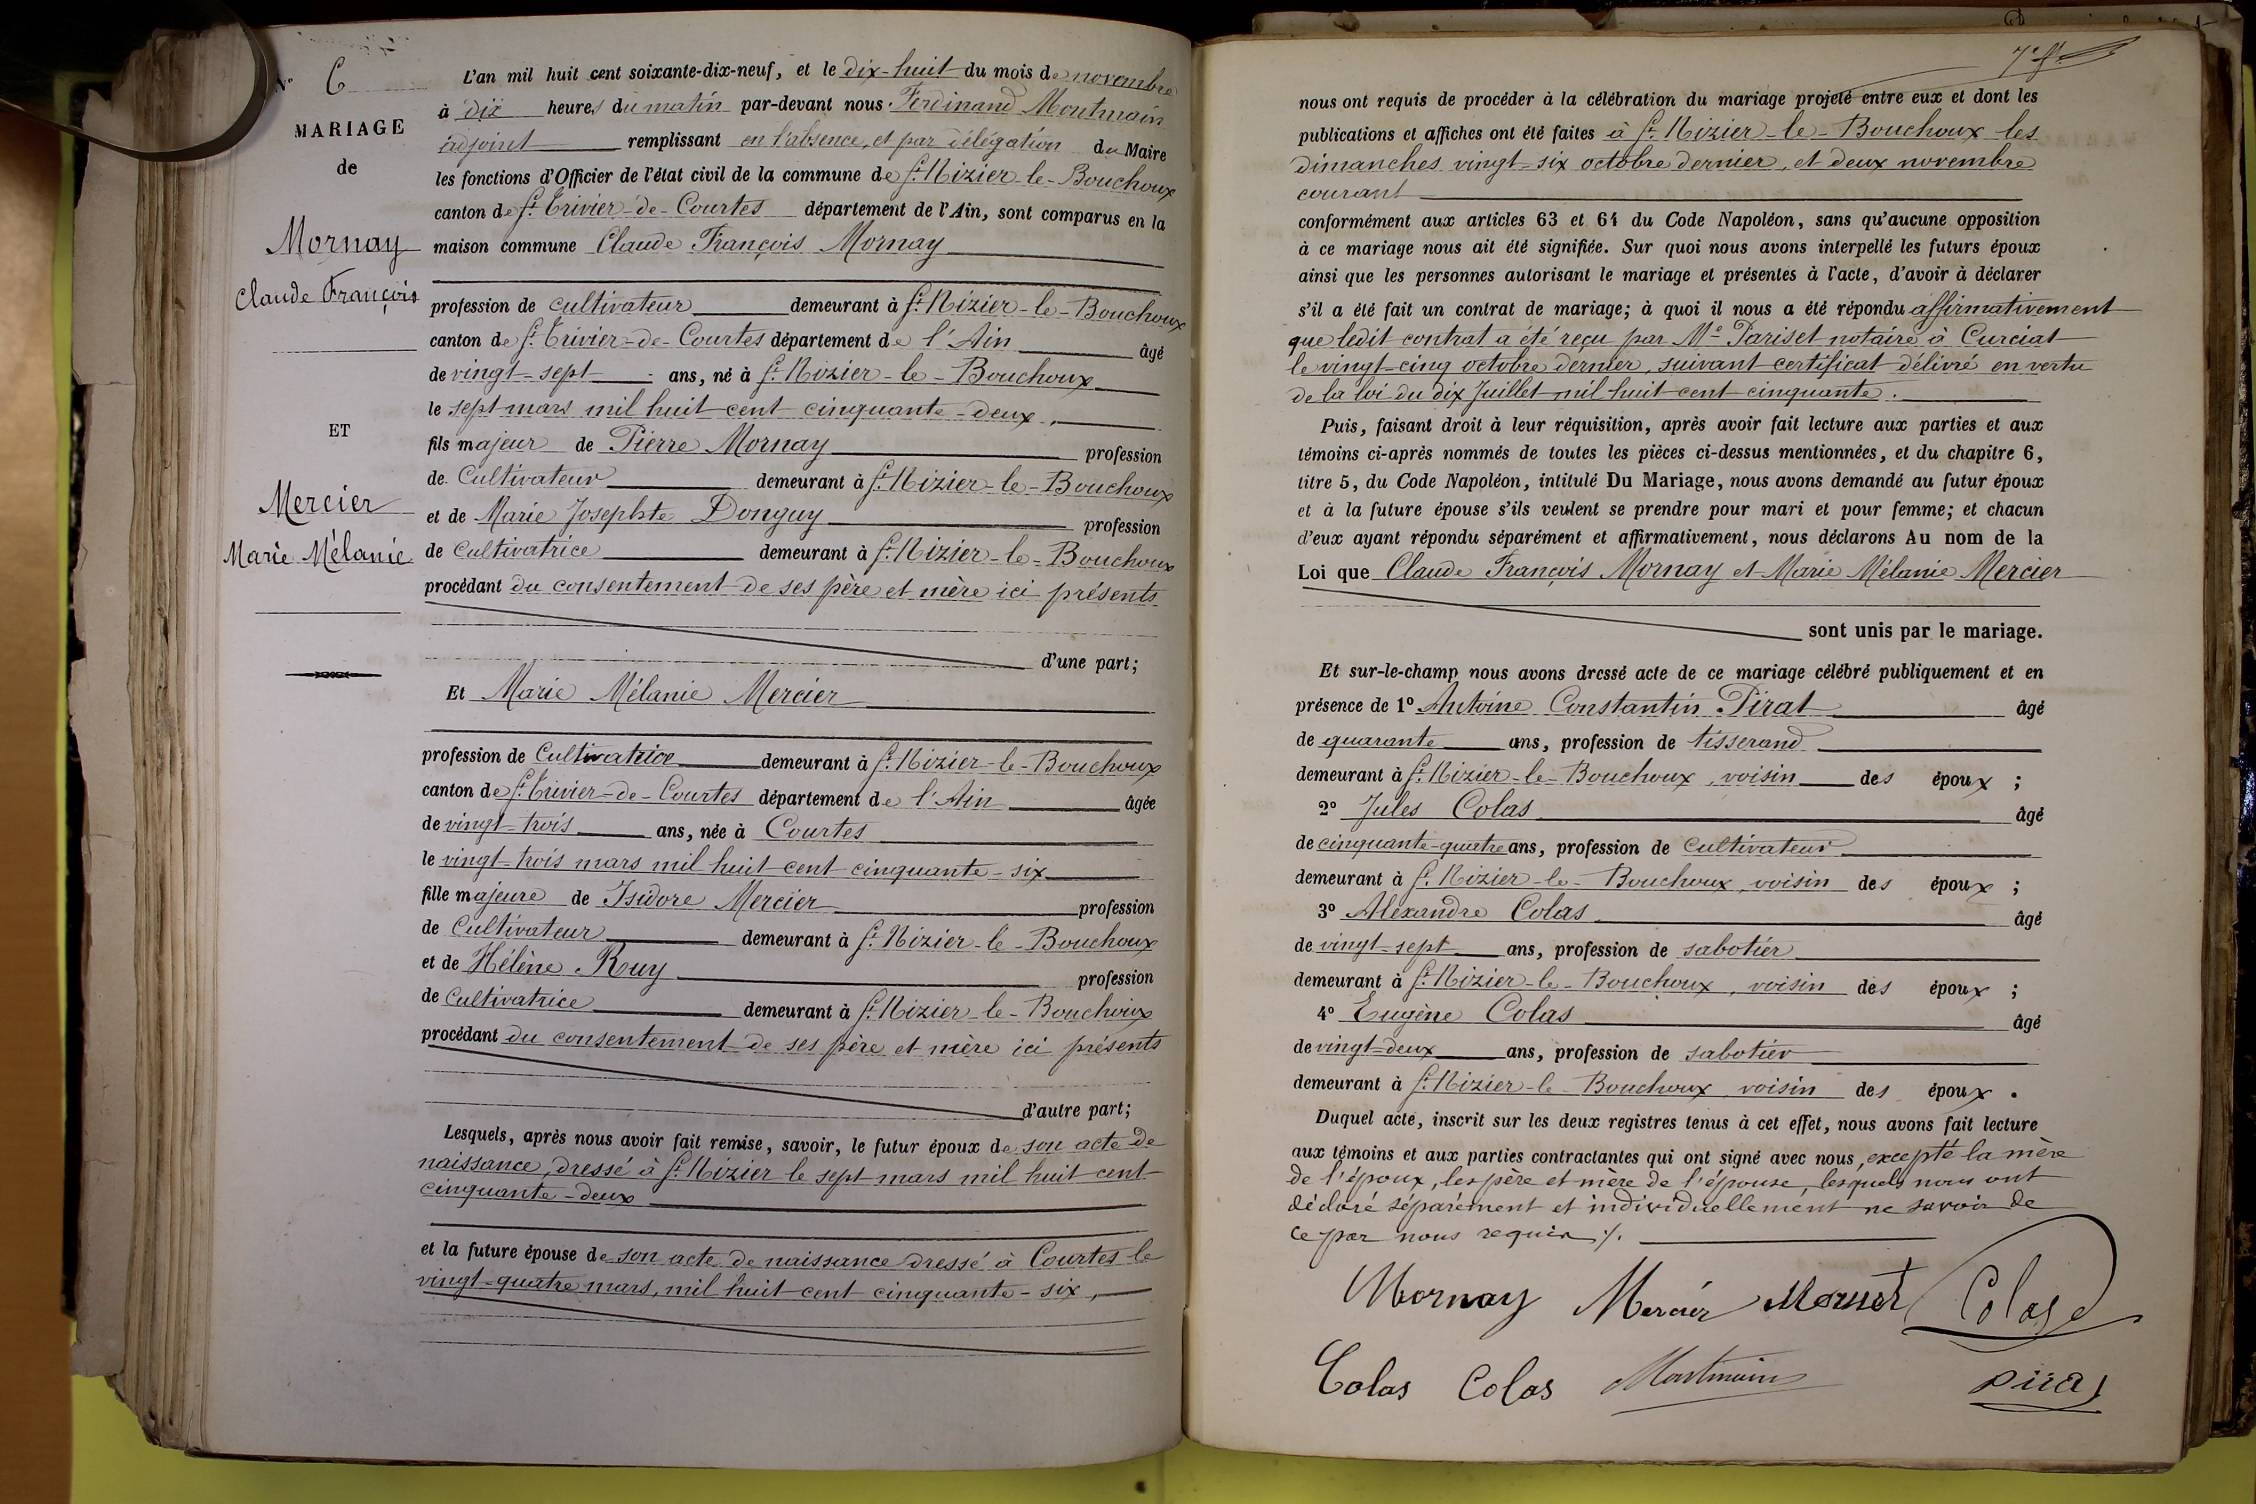 N° 6
MARIAGE
de
Mornay
Claude François
ET
Mercier
Marie Mélanie
L'an mil huit cent soixante-dix-neuf, et le dix-huit du mois de novembre
à dix heures du matin par-devant nous Ferdinand Montmain
adjoint remplissant en l'absence, et par délégation du Maire
les fonctions d'Officier de l'état civil de la commune de St Nizier-le-Bouchoux
canton de St Trivier-de-Courtes département de l'Ain, sont comparus en la
maison commune Claude François Mornay
profession de cultivateur demeurant à St Nizier-le-Bouchoux
canton de St Trivier-de-Courtes département de l'Ain âgé
de vingt-sept ans, né à St Nizier-le-Bouchoux
le sept mars mil huit cent cinquante-deux,
fils majeur de Pierre Mornay profession
de Cultivateur demeurant à St Nizier-le-Bouchoux
et de Marie Josephte Donguy profession
de Cultivatrice demeurant à St Nizier-le-Bouchoux
procédant du consentement de ses père et mère ici présents
d'une part;
Et Marie Mélanie Mercier
profession de Cultivatrice demeurant à St Nizier-le-Bouchoux
canton de St Trivier-de-Courtes département de l'Ain âgée
de vingt-trois ans, née à Courtes
le vingt-trois mars mil huit cent cinquante-six
fille majeure de Isidore Mercier profession
de Cultivateur demeurant à St Nizier-le-Bouchoux
et de Hélène Ruy profession
de Cultivatrice demeurant à St Nizier-le-Bouchoux
procédant du consentement de ses père et mère ici présents
d'autre part;
Lesquels, après nous avoir fait remise, savoir, le futur époux de son acte de
naissance, dressé à St Nizier le sept mars mil huit cent
cinquante-deux
et la future épouse de son acte de naissance dressé à Courtes le
vingt-quatre mars, mil huit cent cinquante-six,
nous ont requis de procéder à la célébration du mariage projeté entre eux et dont les
publications et affiches ont été faites à St Nizier-le-Bouchoux les
dimanches vingt-six octobre dernier, et deux novembre
courant
conformément aux articles 63 et 64 du Code Napoléon, sans qu'aucune opposition
à ce mariage nous ait été signifiée. Sur quoi nous avons interpellé les futurs époux
ainsi que les personnes autorisant le mariage et présentes à l'acte, d'avoir à déclarer
s'il a été fait un contrat de mariage; à quoi il nous a été répondu affirmativement
que ledit contrat a été reçu par Me Pariset notaire à Curciat
le vingt-cinq octobre dernier, suivant certificat délivré en vertu
de la loi du dix Juillet mil huit cent cinquante.
Puis, faisant droit à leur réquisition, après avoir fait lecture aux parties et aux
témoins ci-après nommés de toutes les pièces ci-dessus mentionnées, et du chapitre 6,
titre 5, du Code Napoléon, intitulé Du Mariage, nous avons demandé au futur époux
et à la future épouse s'ils veulent se prendre pour mari et pour femme; et chacun
d'eux ayant répondu séparément et affirmativement, nous déclarons Au nom de la
Loi que Claude François Mornay et Marie Mélanie Mercier
sont unis par le mariage.
Et sur-le-champ nous avons dressé acte de ce mariage célébré publiquement et en
présence de 1° Antoine Constantin Pirat âgé
de quarante ans, profession de tisserand
demeurant à St Nizier-le-Bouchoux, voisin des époux ;
2° Jules Colas âgé
de cinquante-quatre ans, profession de cultivateur
demeurant à St Nizier-le-Bouchoux, voisin des époux ;
3° Alexandre Colas âgé
de vingt-sept ans, profession de sabotier
demeurant à St Nizier-le-Bouchoux, voisin des époux ;
4° Eugène Colas âgé
de vingt-deux ans, profession de sabotier
demeurant à St Nizier-le-Bouchoux, voisin des époux .
Duquel acte, inscrit sur les deux registres tenus à cet effet, nous avons fait lecture
aux témoins et aux parties contractantes qui ont signé avec nous, excepté la mère
de l'époux, les père et mère de l'épouse, lesquels nous ont
déclaré séparément et individuellement ne savoir de
ce par nous requis ./.
Mornay Mercier Colas
Colas Colas Montmain Pirat